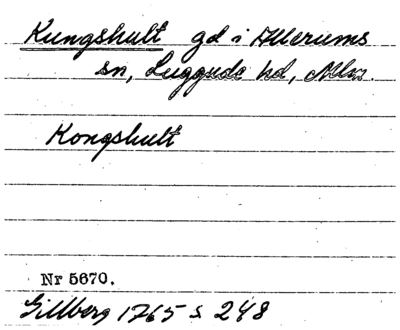 Kungshult gd i Allerums
sn, Luggude hd, Mlm.
Kongshult
Nr 5670.
Gillberg 1765 s 248